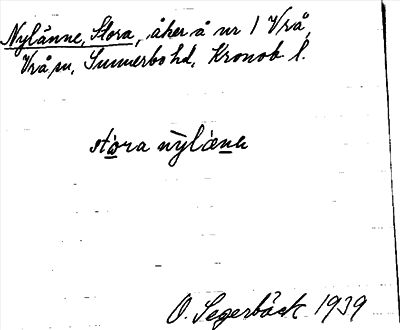 Nylänne, Stora, åker å nr 1 Vrå,
Vrå sn, Sunnerbo hd, Kronob l.
stora nylänn
O. Segerbäck 1939